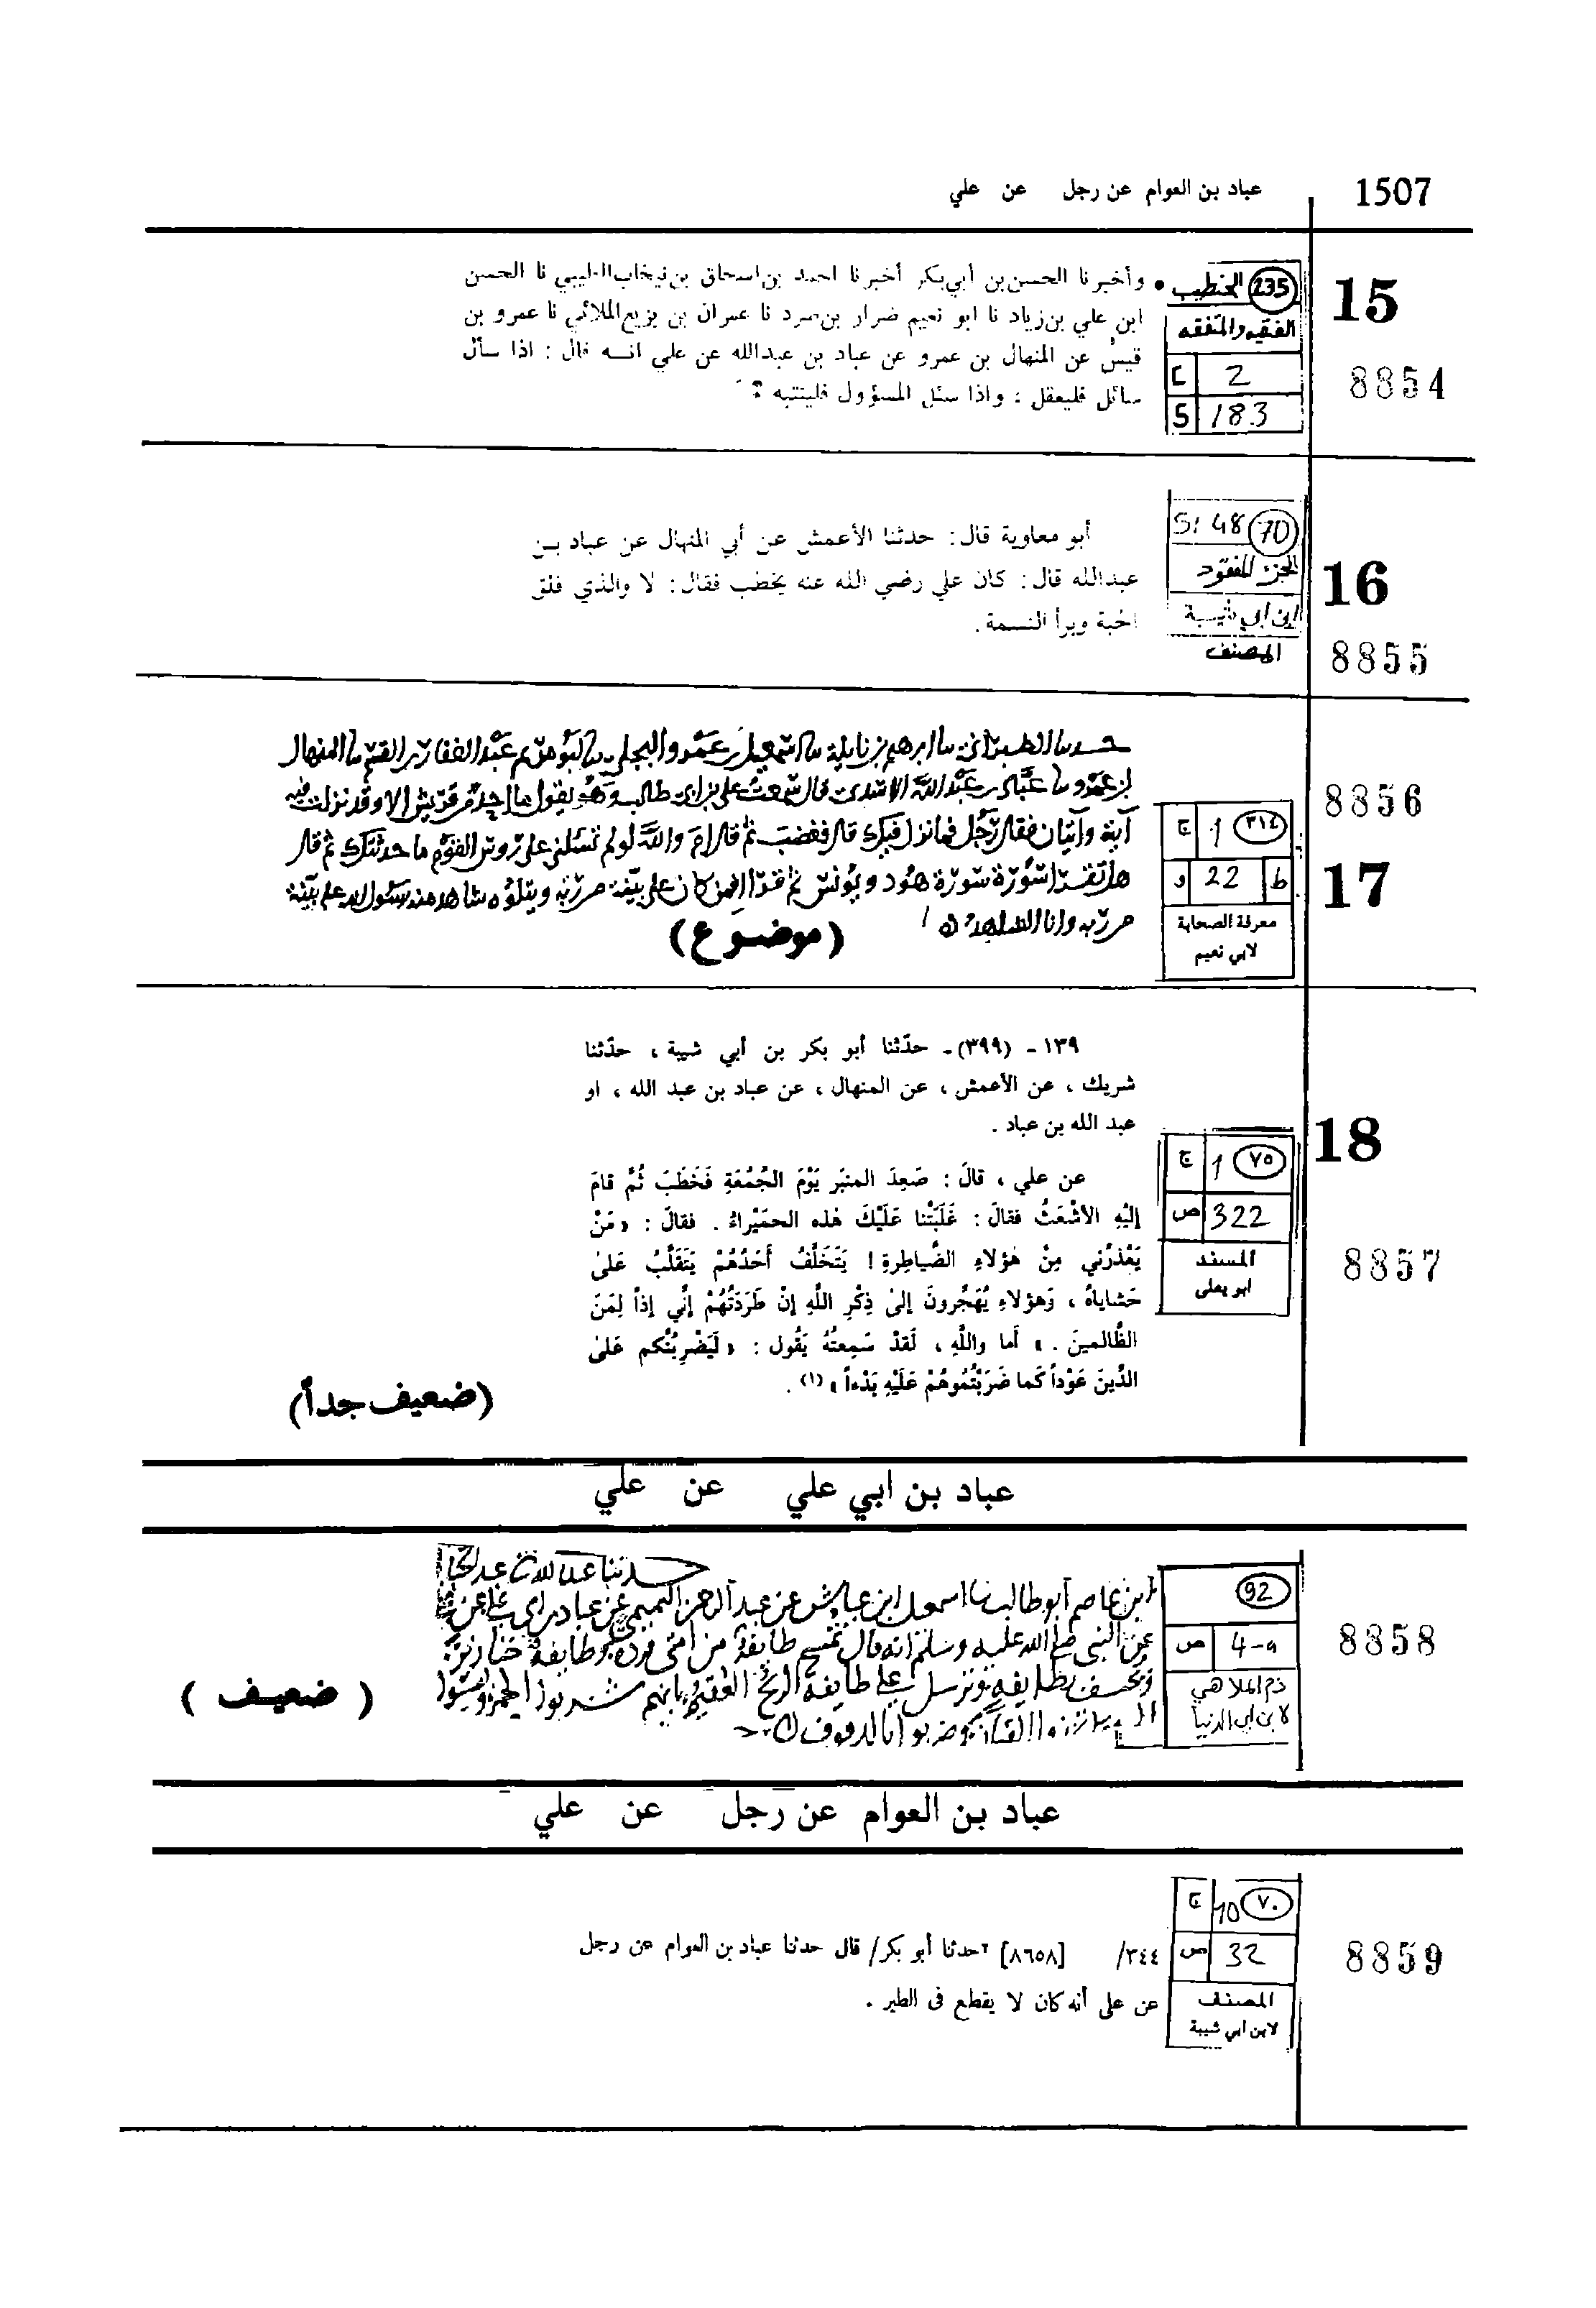 1507
عباد بن العوام عن رجل عن علي
15
8854
235 الخطيب
الفقيه والمتفقه
C 2
S 183
• وأخبرنا الحسن بن أبي بكر أخبرنا احمد بن اسحاق بن نيخاب الطيبي نا الحسن
ابن علي بن زياد نا ابو نعيم ضرار بن صرد نا عمران بن بزيع الملائي نا عمرو بن
قيس عن المنهال بن عمرو عن عباد بن عبدالله عن علي انه قال : اذا سأل
سائل فليعقل ؛ واذا سئل المسؤول فليتتبه
16
8855
70 S: 48
الجزء المفقود
ابن ابي شيبة
المصنف
أبو معاوية قال: حدثنا الأعمش عن أبي المنهال عن عباد بن
عبدالله قال: كان علي رضي الله عنه يخطب فقال: لا والذي فلق
الحبة وبرأ النسمة.
8856
17
٣١٤ 1 ج
ط 22 و
معرفة الصحابة
لابي نعيم
ابرهيم بن نايلة اسمعيل بن عمرو البجلي عبد الغفار بن القسم المنهال
بن عمرو عباد بن عبد الله الاسدي قال سمعت علي بن ابي طالب وهو يقول ما احد من قريش الا وقد نزلت فيه
آية وآيتان فقال رجل فما نزل فيك قال فغضب ثم قال ام والله لو لم تسلني على روس القوم ما حدثتك ثم قال
هل تقرا سورة هود ويونس ثم قرا افمن كان على بينة من ربه ويتلوه شاهد منه رسول الله على بينة
من ربه وانا الشاهد منه
(موضوع)
18
8857
٧٥ 1 ج
322 ص
المسند
ابو يعلى
١٣٩ - (٣٩٩)- حدّثنا أبو بكر بن أبي شيبة ، حدّثنا
شريك ، عن الأعمش ، عن المنهال ، عن عباد بن عبد الله ، او
عبد الله بن عباد .
عن علي ، قالَ : صَعِدَ المنبَر يَوْمَ الجُمُعَةِ فَخَطَبَ ثُمَّ قامَ
إلَيْهِ الأشْعَثُ فقالَ : غَلَبَتْنا عَلَيْكَ هٰذه الحمَيْراءُ . فقالَ : «مَنْ
يَعْذرُني مِنْ هٰؤلاءِ الضَّياطِرةِ ! يَتَخَلَّفُ أَحَدُهُمْ يَتَقَلَّبُ عَلىٰ
حَشاياهُ ، وَهٰؤلاءِ يُهَجِّرونَ إلىٰ ذِكْرِ اللَّهِ إنْ طَرَدَتُهُمْ إنِّي إذاً لِمَنَ
الظَّالمينَ . » أما واللَّهِ ، لَقدْ سَمِعتُهُ يَقُول : «لَيَضْرِبُنَّكم عَلىٰ
الدِّينَ عَوْداً كَما ضَرَبْتُمُوهُمْ عَلَيْهِ بَدْءاً » (١) .
(ضعيف جداً)
عباد بن ابي علي عن علي
8858
92
4-9 ص
ذم الملاهي
لابن ابي الدنيا
حدثنا
ابن عاصم ابو طالب اسمعيل ابن عياش عن عبد الرحمن التميمي عن عباد بن ابي علي عن علي
عن النبي صلى الله عليه وسلم انه قال تمسخ طايفة من امتي قردة وطايفة خنازير
ويخسف بطايفة ويرسل على طايفة الريح العقيم بانهم شربوا الخمر ولبسوا
القيان وضربوا بالدفوف
( ضعيف )
عباد بن العوام عن رجل عن علي
8859
٧٠ 10 ج
32 ص
المصنف
لابن ابي شيبة
٣٤٤/ [٨٦٥٨] حدثنا أبو بكر/ قال حدثنا عباد بن العوام عن رجل
عن على أنه كان لا يقطع فى الطير .